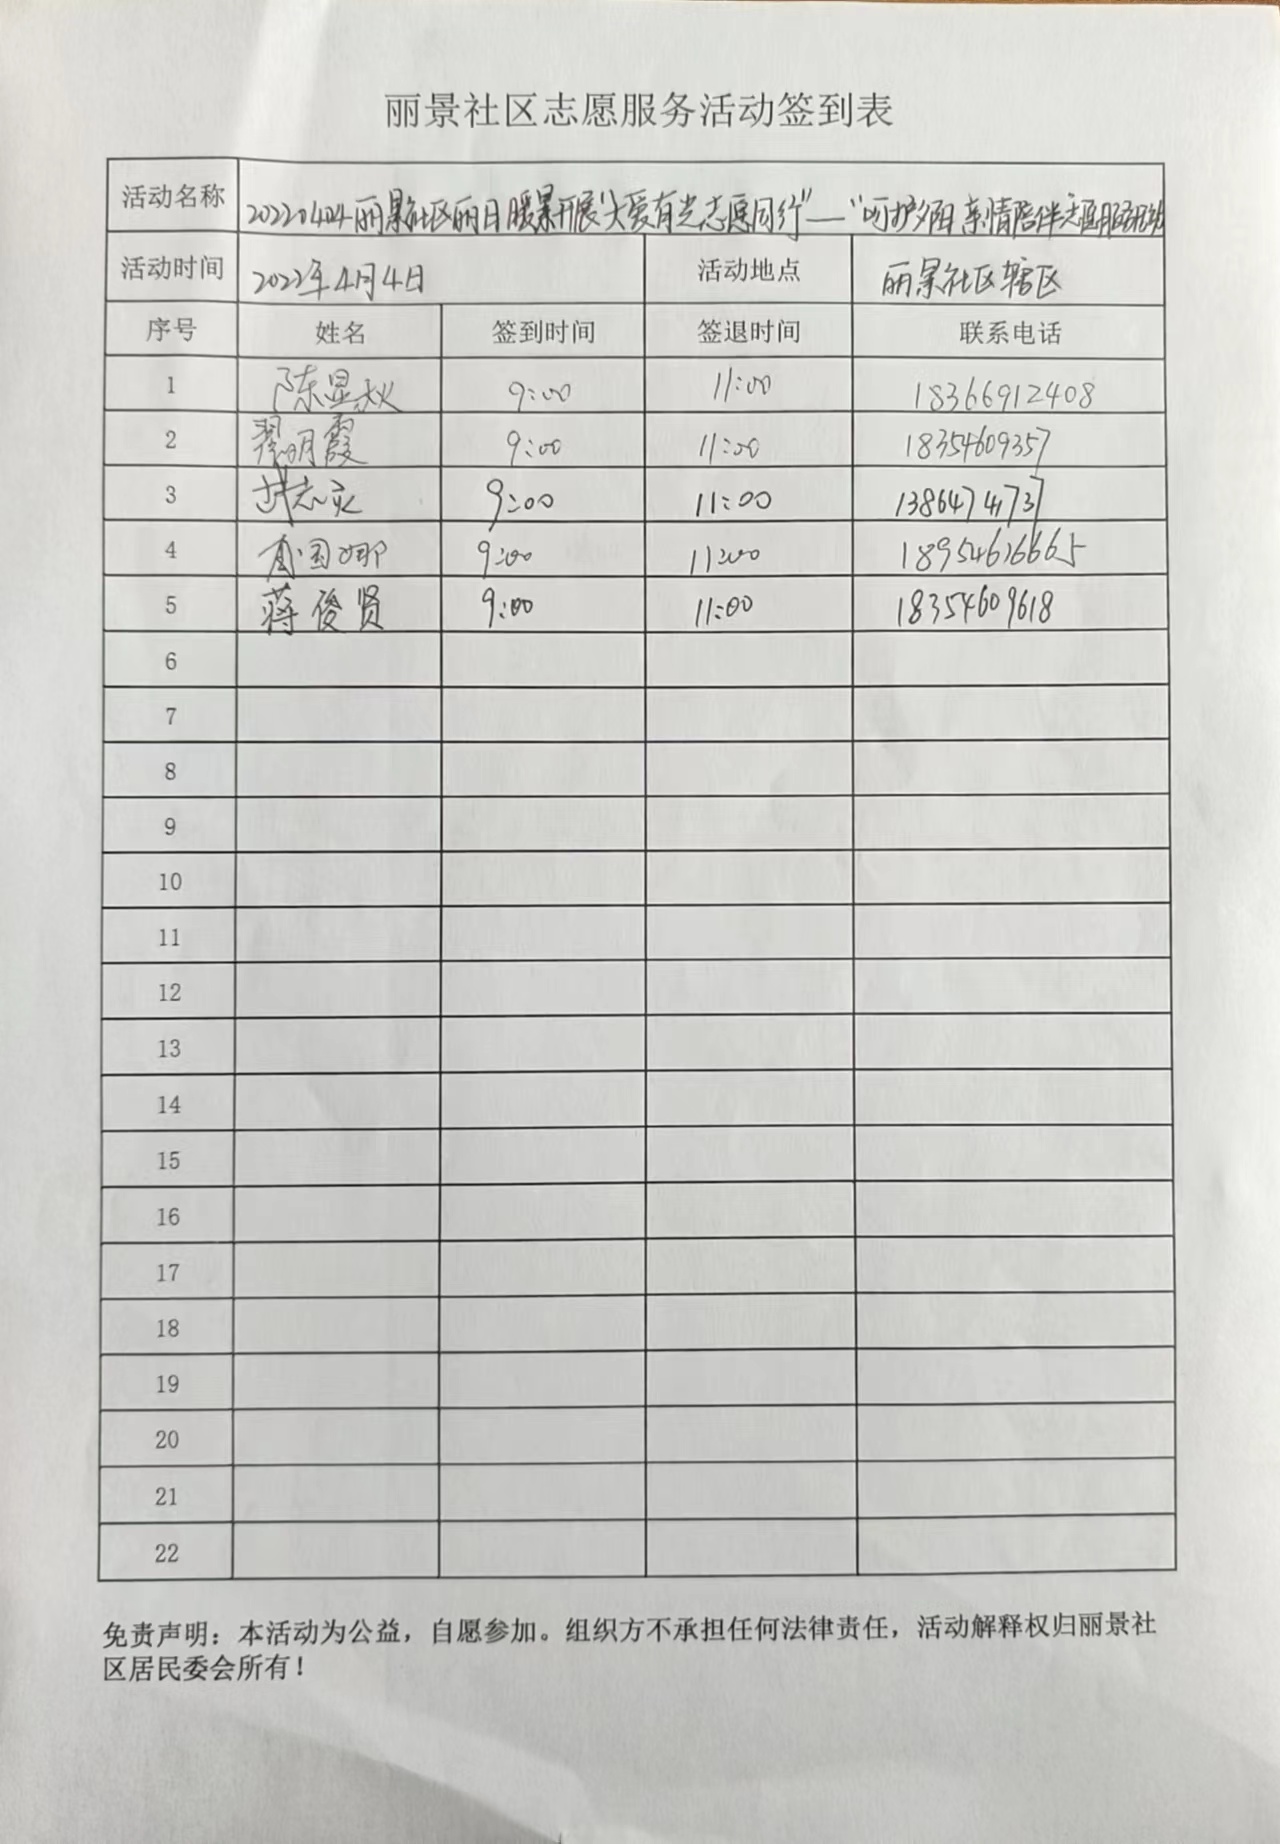 丽景社区志愿服务活动签到表
活动名称 20220404丽景社区丽日暖景开展"大爱有光志愿同行"—"呵护夕阳 亲情陪伴志愿服务活动
活动时间 2022年4月4日 活动地点 丽景社区辖区
序号 姓名 签到时间 签退时间 联系电话
1 陈显秋 9:00 11:00 18366912408
2 翟明霞 9:00 11:00 18354609357
3 9:00 11:00 13864741737
4 9:00 11:00 18954626665
5 蒋俊贤 9:00 11:00 18354609618
6
7
8
9
10
11
12
13
14
15
16
17
18
19
20
21
22
免责声明：本活动为公益，自愿参加。组织方不承担任何法律责任，活动解释权归丽景社
区居民委会所有！